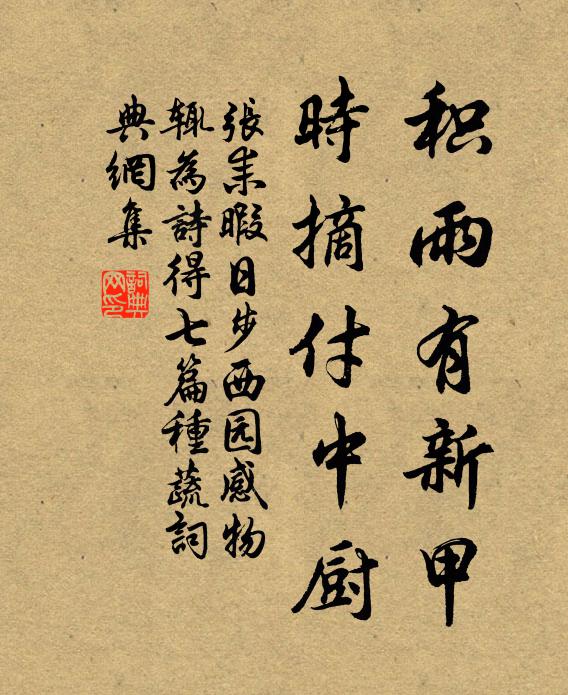 积雨有新甲
時摘付中厨
張耒暇日步西园感物
輒為詩得七篇種蔬詞
典網集
詞典网印